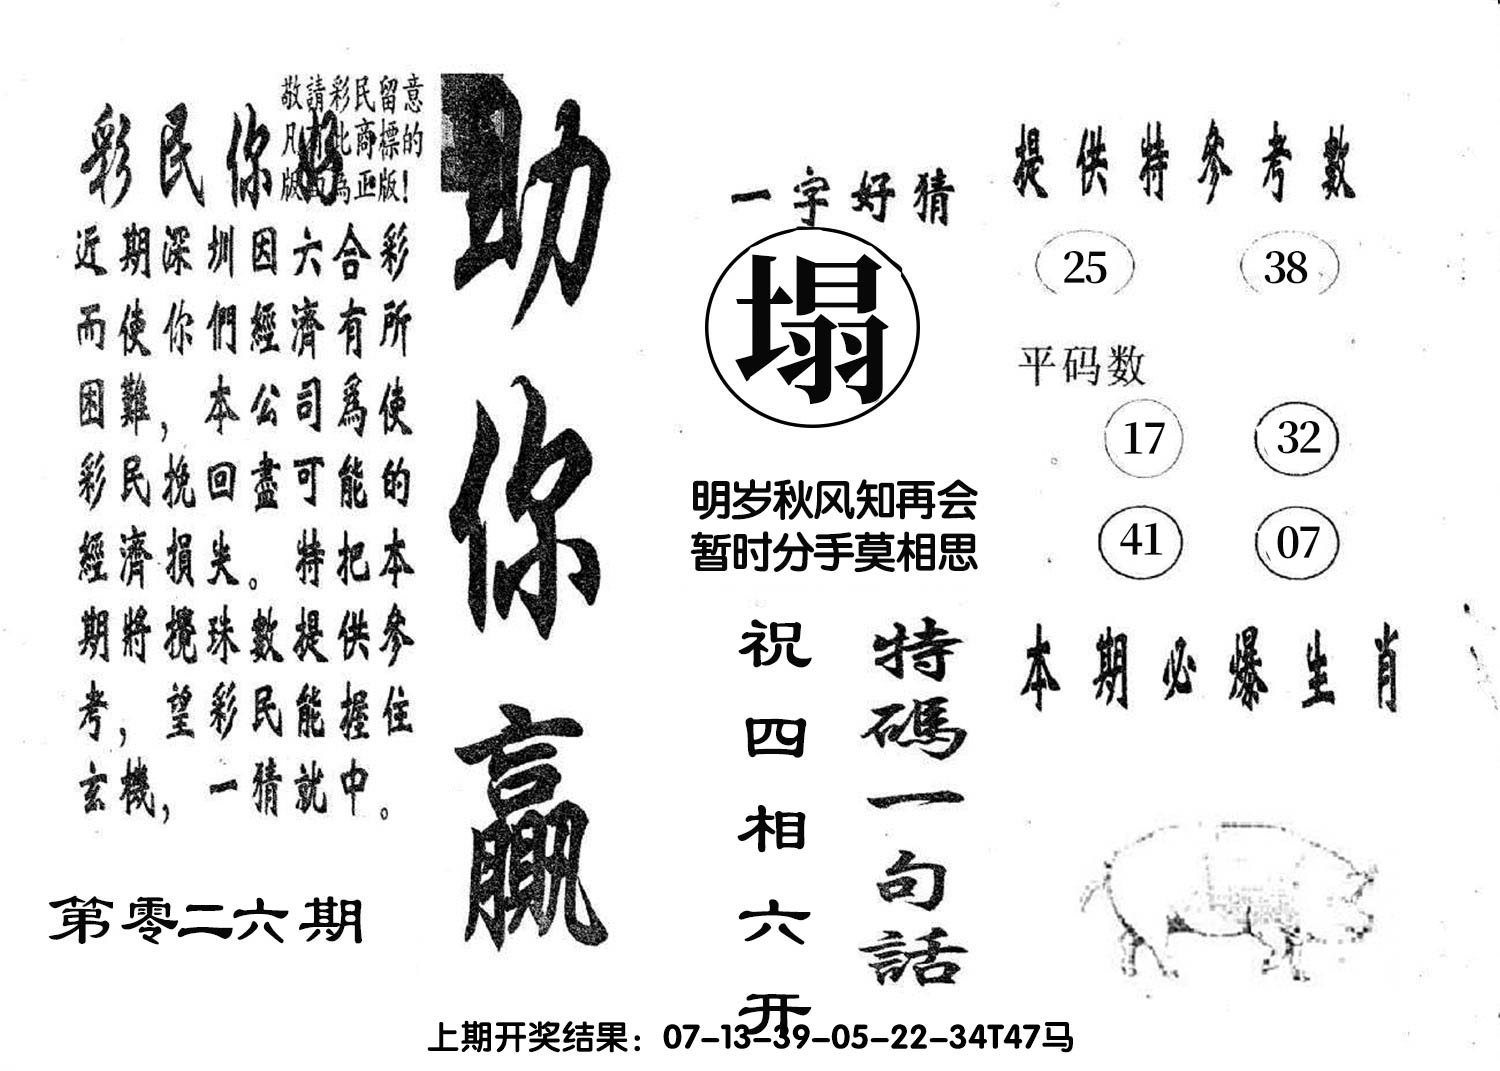 敬請彩民留意
凡有此商標的
版面為正版!
彩民你好
近期深圳因六合彩
而使你們經濟有所
困難，本公司爲使
彩民挽回盡可能的
經濟損失。特把本
期將攪珠數提供參
考，望彩民能握住
玄機，一猜就中。
第零二六期
助你贏
一字好猜
塌
明岁秋风知再会
暂时分手莫相思
特碼一句話
祝四相六开
提供特參考數
25 38
平码数
17 32
41 07
本期必爆生肖
上期开奖结果：07-13-39-05-22-34T47马